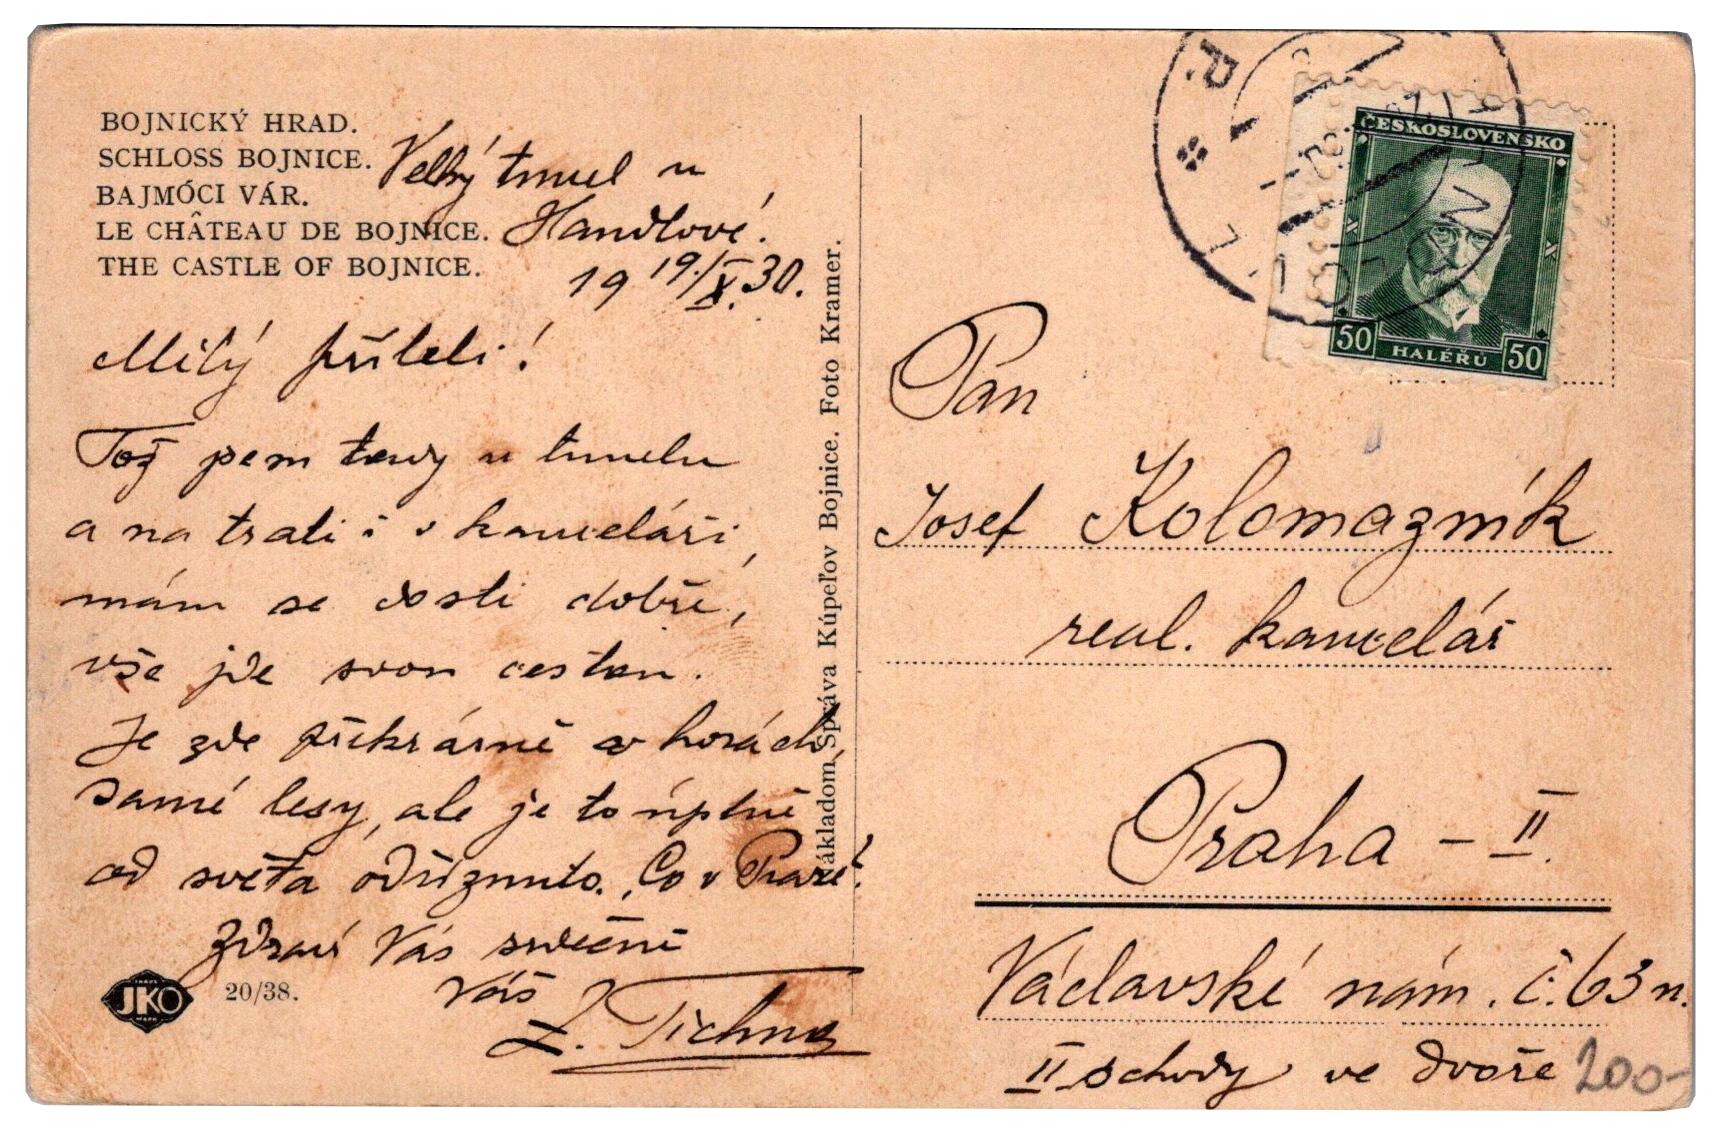 BOJNICKÝ HRAD.
SCHLOSS BOJNICE.
BAJMÓCI VÁR.
LE CHÂTEAU DE BOJNICE.
THE CASTLE OF BOJNICE.
Velký tunel u
Handlové.
19 19./X. 30.
Milý příteli!
Tož jsem tady u tunelu
a na trati i v kanceláři,
mám se dosti dobře,
vše jde svou cestou.
Je zde překrásně v horách,
samé lesy, ale je to úplně
od světa odříznuto. Co v Praze?
Zdraví Vás srdečně
Váš
Tichný
JKO
20/38.
Nákladom Správa Kúpeľov Bojnice. Foto Kramer.
ČESKOSLOVENSKO
50 HALÉŘŮ 50
Pan
Josef Kolomazník
real. kancelář
Praha – II.
Václavské nám. č. 63 n.
II schody ve dvoře
200-